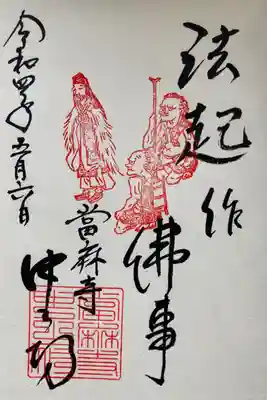 法起作
佛事
當麻寺
中之坊
令和四年五月六日